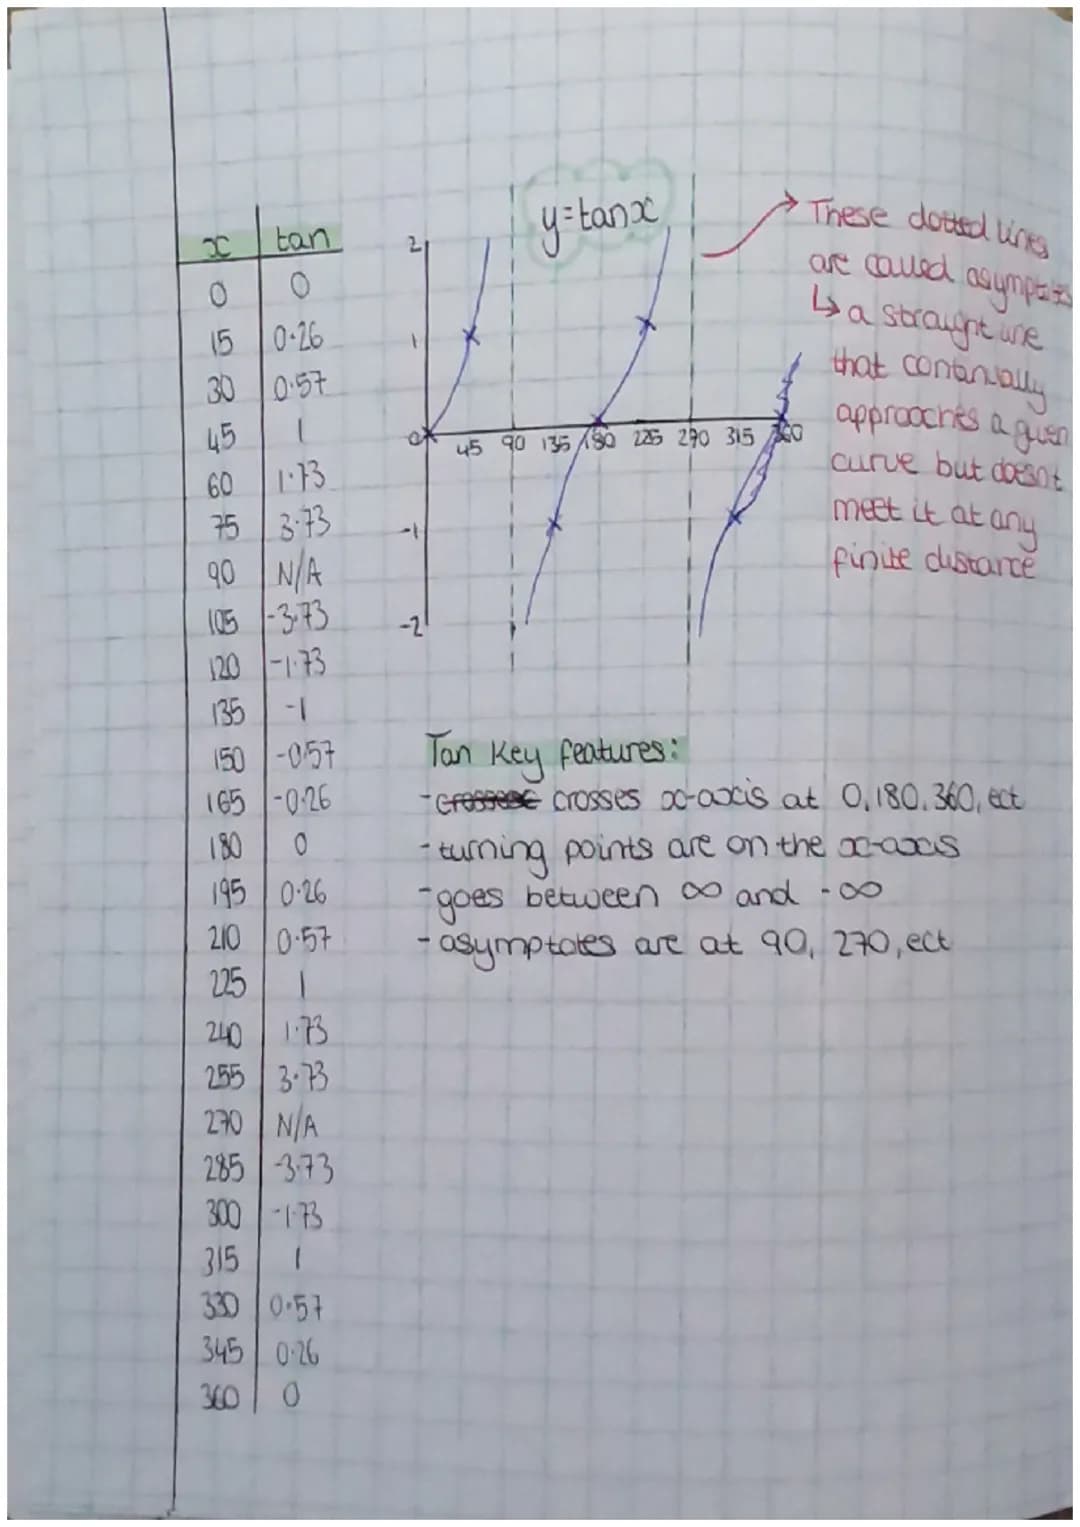 x tan
0 0
15 0.26
30 0.57
45 1
60 1.73
75 3.73
90 N/A
105 -3.73
120 -1.73
135 -1
150 -0.57
165 -0.26
180 0
195 0.26
210 0.57
225 1
240 1.73
255 3.73
270 N/A
285 -3.73
300 -1.73
315 1
330 0.57
345 0.26
360 0
y=tanx
2
1
0
-1
-2
45 90 135 180 225 270 315 360
→ These dotted lines
are called asymptotes
↳ a straight line
that continually
approaches a given
curve but doesnt
meet it at any
finite distance
Tan Key features:
- crosses x-axis at 0, 180, 360, ect
- turning points are on the x-axis
- goes between ∞ and -∞
- asymptotes are at 90, 270, ect